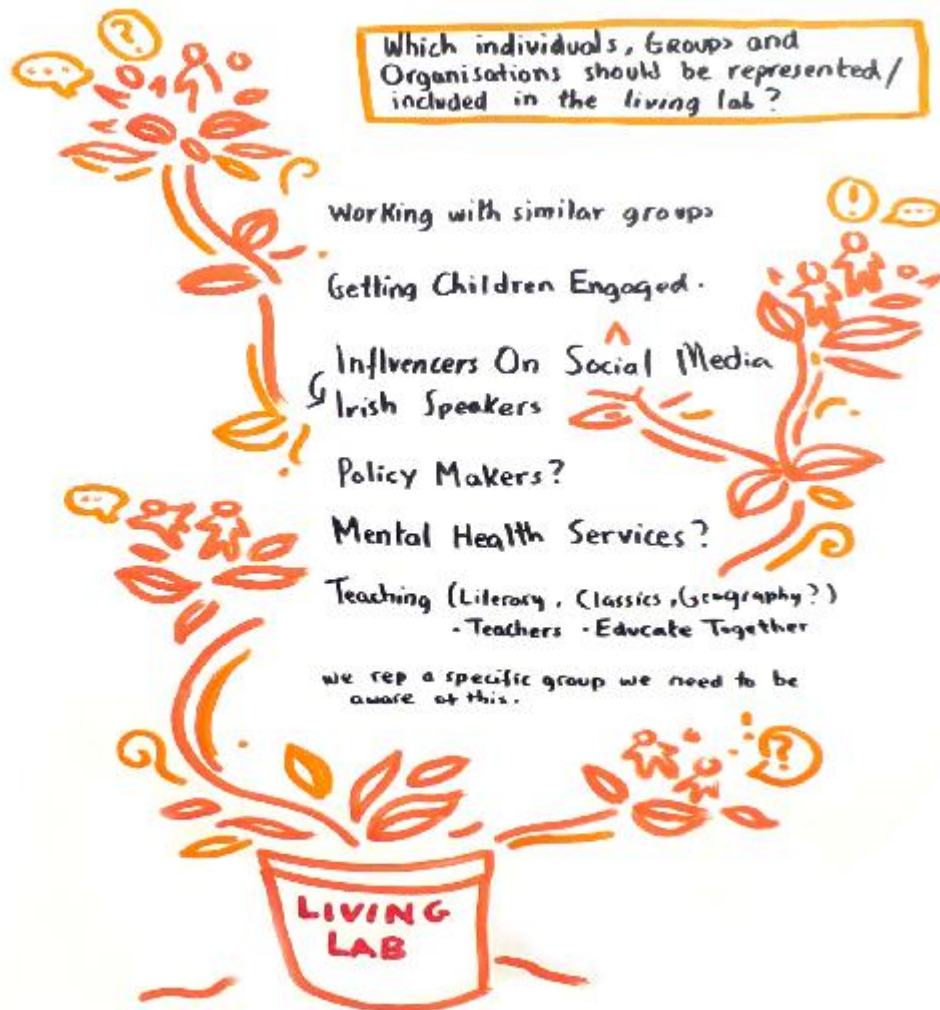 Which individuals, Groups and
Organisations should be represented/
included in the living lab?
Working with similar groups
Getting Children Engaged.
Influencers On Social Media
Irish Speakers
Policy Makers?
Mental Health Services?
Teaching (Literacy, Classics, Geography?)
- Teachers - Educate Together
we rep a specific group we need to be
aware of this.
LIVING
LAB